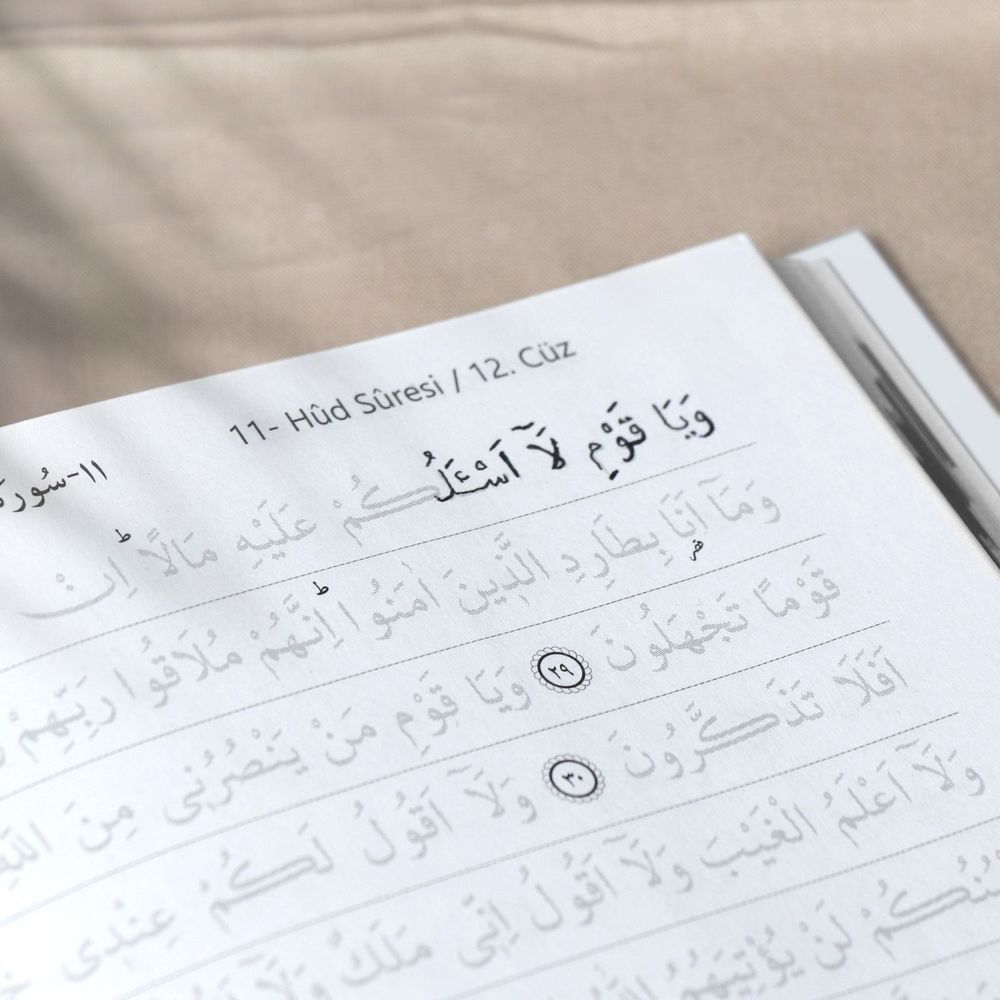 11- Hûd Sûresi / 12. Cüz
١١-سُورَة
وَيَا قَوْمِ لَآ اَسْـَٔلُكُمْ عَلَيْهِ مَالًاۜ اِنْ
وَمَآ اَنَا۬ بِطَارِدِ الَّذ۪ينَ اٰمَنُواۜ اِنَّهُمْ مُلَاقُوا رَبِّهِمْ
قَوْمًا تَجْهَلُونَ ﴿٢٩﴾ وَيَا قَوْمِ مَنْ يَنْصُرُن۪ى مِنَ اللّٰهِ
اَفَلَا تَذَكَّرُونَ ﴿٣٠﴾ وَلَآ اَقُولُ لَكُمْ عِنْد۪ى
وَلَآ اَعْلَمُ الْغَيْبَ وَلَآ اَقُولُ اِنّ۪ى مَلَكٌ وَلَآ
لَنْ يُؤْتِيَهُمُ